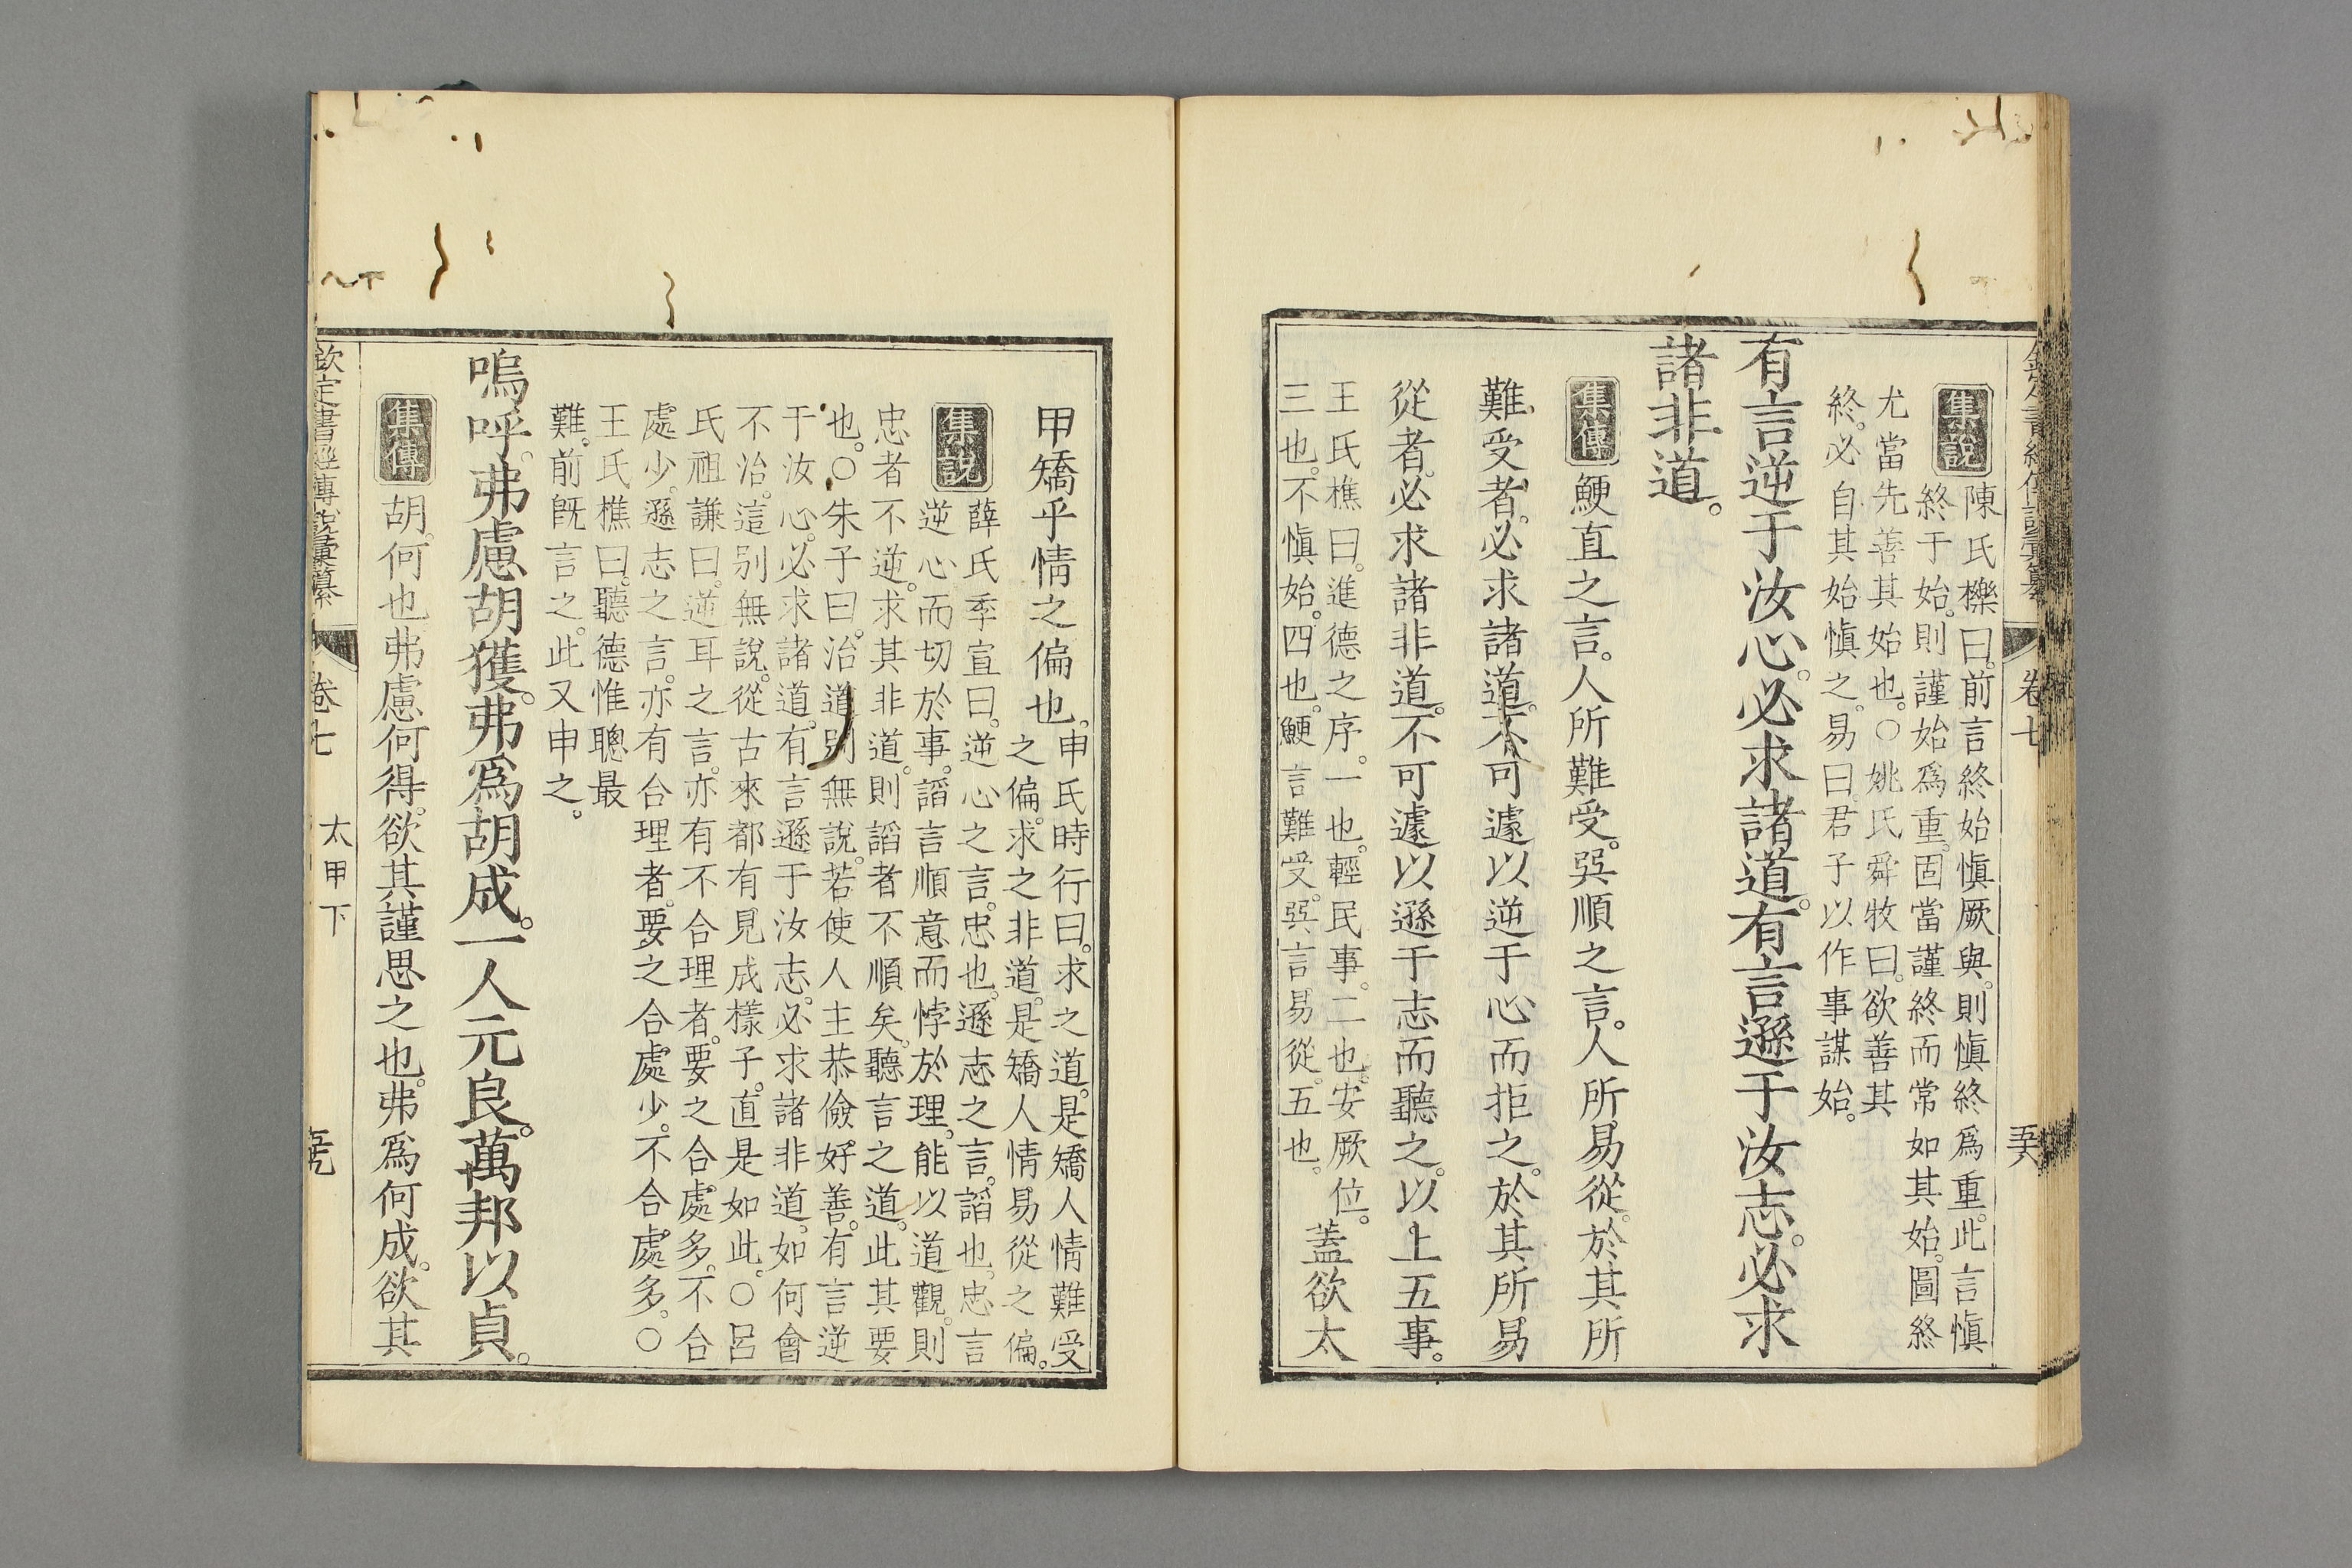 欽定書經傳說彙纂 卷七 五六
集說
陳氏櫟曰。前言終始愼厥與。則愼終爲重。此言愼
終于始。則謹始爲重。固當謹終而常如其始。圖終
尤當先善其始也。○姚氏舜牧曰。欲善其
終。必自其始愼之。易曰。君子以作事謀始。
有言逆于汝心。必求諸道。有言遜于汝志。必求
諸非道。
集傳 鯁直之言。人所難受。巽順之言。人所易從。於其所
難受者。必求諸道。不可遽以逆于心而拒之。於其所易
從者。必求諸非道。不可遽以遜于志而聽之。以上五事。
王氏樵曰。進德之序。一也。輕民事。二也。安厥位。
三也。不愼始。四也。鯁言難受。巽言易從。五也。
蓋欲太
甲矯乎情之偏也。
申氏時行曰。求之道。是矯人情難受
之偏。求之非道。是矯人情易從之偏。
集說
薛氏季宣曰。逆心之言。忠也。遜志之言。諂也。忠言
逆心而切於事。諂言順意而悖於理。能以道觀。則
忠者不逆。求其非道。則諂者不順矣。聽言之道。此其要
也。○朱子曰。治道別無說。若使人主恭儉好善。有言逆
于汝心。必求諸道。有言遜于汝志。必求諸非道。如何會
不治。這別無說。從古來都有見成樣子。直是如此。○呂
氏祖謙曰。逆耳之言。亦有不合理者。要之合處多。不合
處少。遜志之言。亦有合理者。要之合處少。不合處多。○
王氏樵曰。聽德惟聰最
難。前旣言之。此又申之。
嗚呼。弗慮胡獲。弗爲胡成。一人元良。萬邦以貞。
集傳 胡。何也。弗慮何得。欲其謹思之也。弗爲何成。欲其
欽定書經傳說彙纂 卷七 太甲下 五九